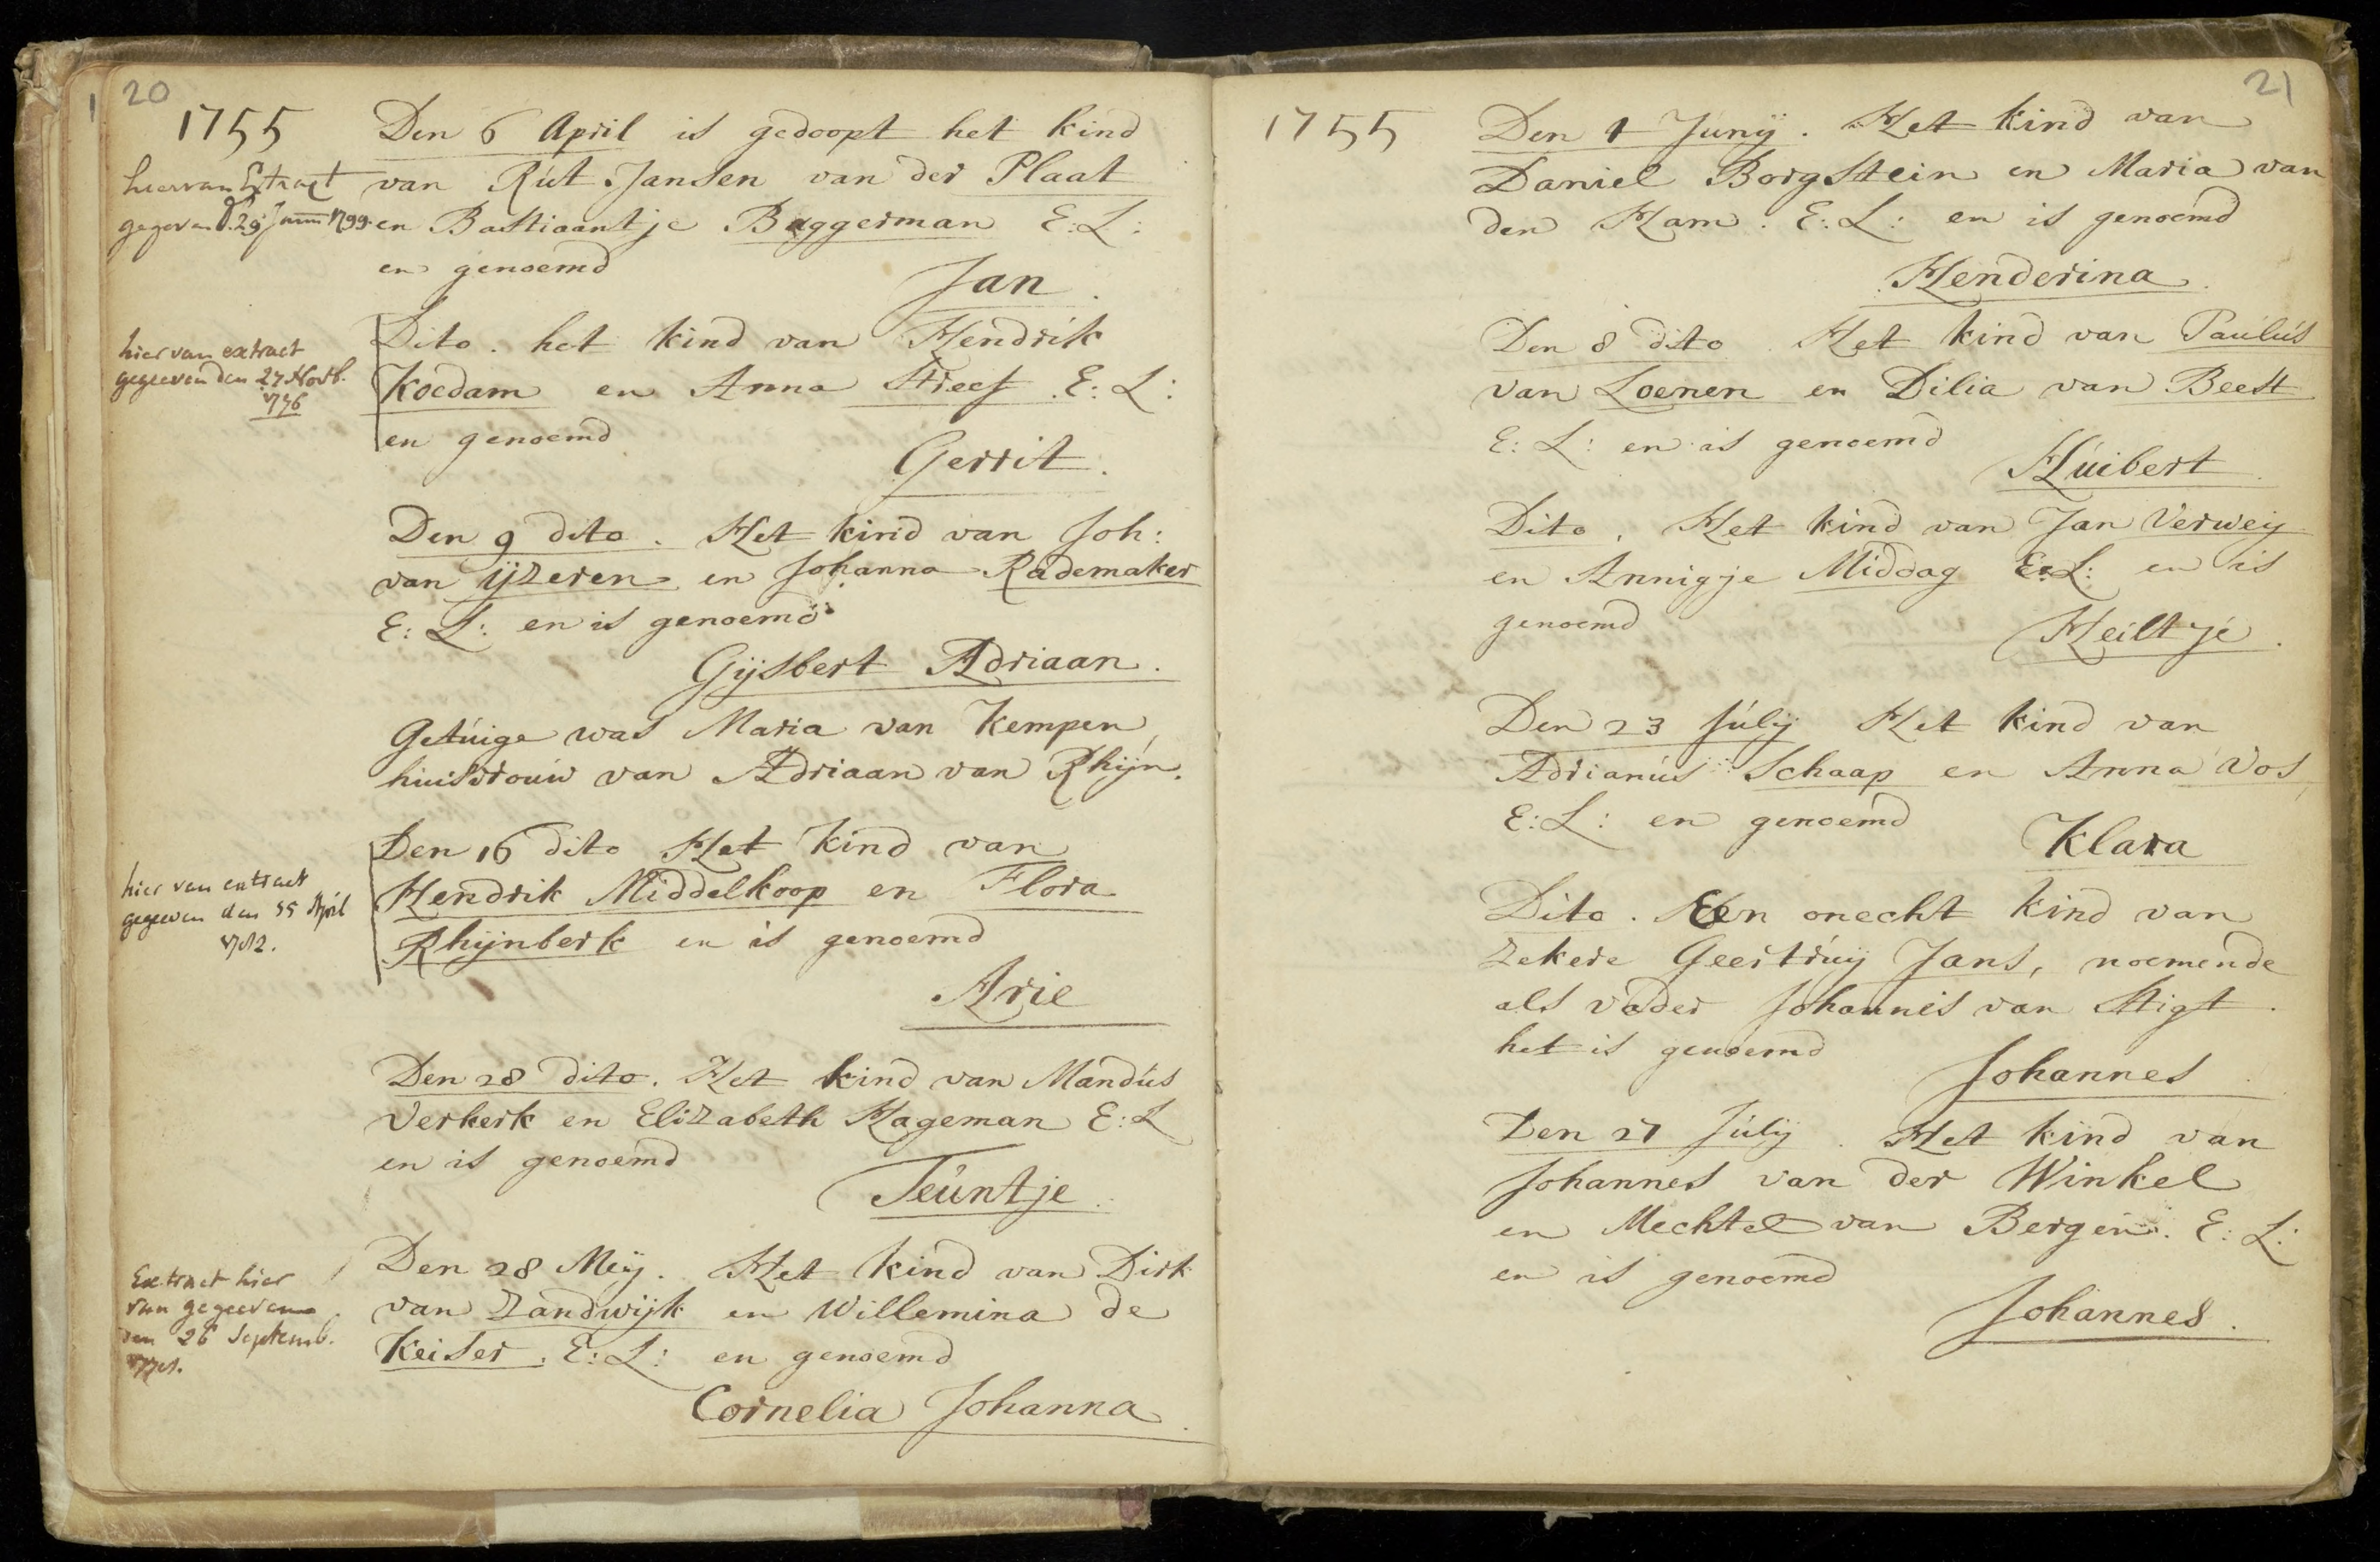 20
1755
Den 6 April is gedoopt het kind
van Rút Jansen van der Plaat
en Bastiaantje Baggerman E:L:
en genoemd
Jan.
hiervan Extract
gegeven d. 29 Junii 1799.
Dito. het kind van Hendrik
Koedam en Anna Streef. E: L:
en genoemd
Gerrit.
hier van extract
gegeeven den 27 Novb.
1776
Den 9 dito. Het kind van Joh:
van ijzeren en Johanna Rademaker
E: L: en is genoemd
Gijsbert Adriaan.
Getúige was Maria van Kempen,
huisvrouw van Adriaan van Rhijn.
Den 16 dito Het kind van
Hendrik Middelkoop en Flora
Rhijnberk en is genoemd
Arie
hier van extract
gegeeven den 15 April
1782.
Den 28 dito. Het kind van Mandús
Verkerk en Elizabeth Hageman E:L
en is genoemd
Teúntje.
Den 28 Meij. Het kind van Dirk
van Zandwijk en Willemina de
Keiser. E:L: en genoemd
Cornelia Johanna.
Extract hier
van gegeeven
den 26 Septemb.
21
1755
Den 1 Junij. Het kind van
Daniel Borgstein en Maria van
den Ham. E:L: en is genoemd
Henderina.
Den 8 dito. Het kind van Paúlús
van Loenen en Dilia van Beest
E: L: en is genoemd
Húibert.
Dito. Het kind van Jan Verweij
en Annigje Middag E:L: en is
genoemd
Heiltje.
Den 23 Júlij Het kind van
Adrianús Schaap en Anna Vos,
E:L: en genoemd
Klara
Dito. Een onecht kind van
zekere Geertrúij Jans, noemende
als vader Johannes van Stigt.
het is genoemd
Johannes.
Den 27 Júlij. Het kind van
Johannes van der Winkel
en Mechtel van Bergen. E: L:
en is genoemd
Johannes.